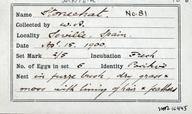 Name Stonechat. No: 81
Collected by W. A.
Locality Seville. Spain.
Date Apr. 15. 1900.
Set Mark 2/5 Incubation Fresh
No. of Eggs in set 5 Identity Positive
Nest in furze bush. dry grass &
moss with lining of hair & feathers